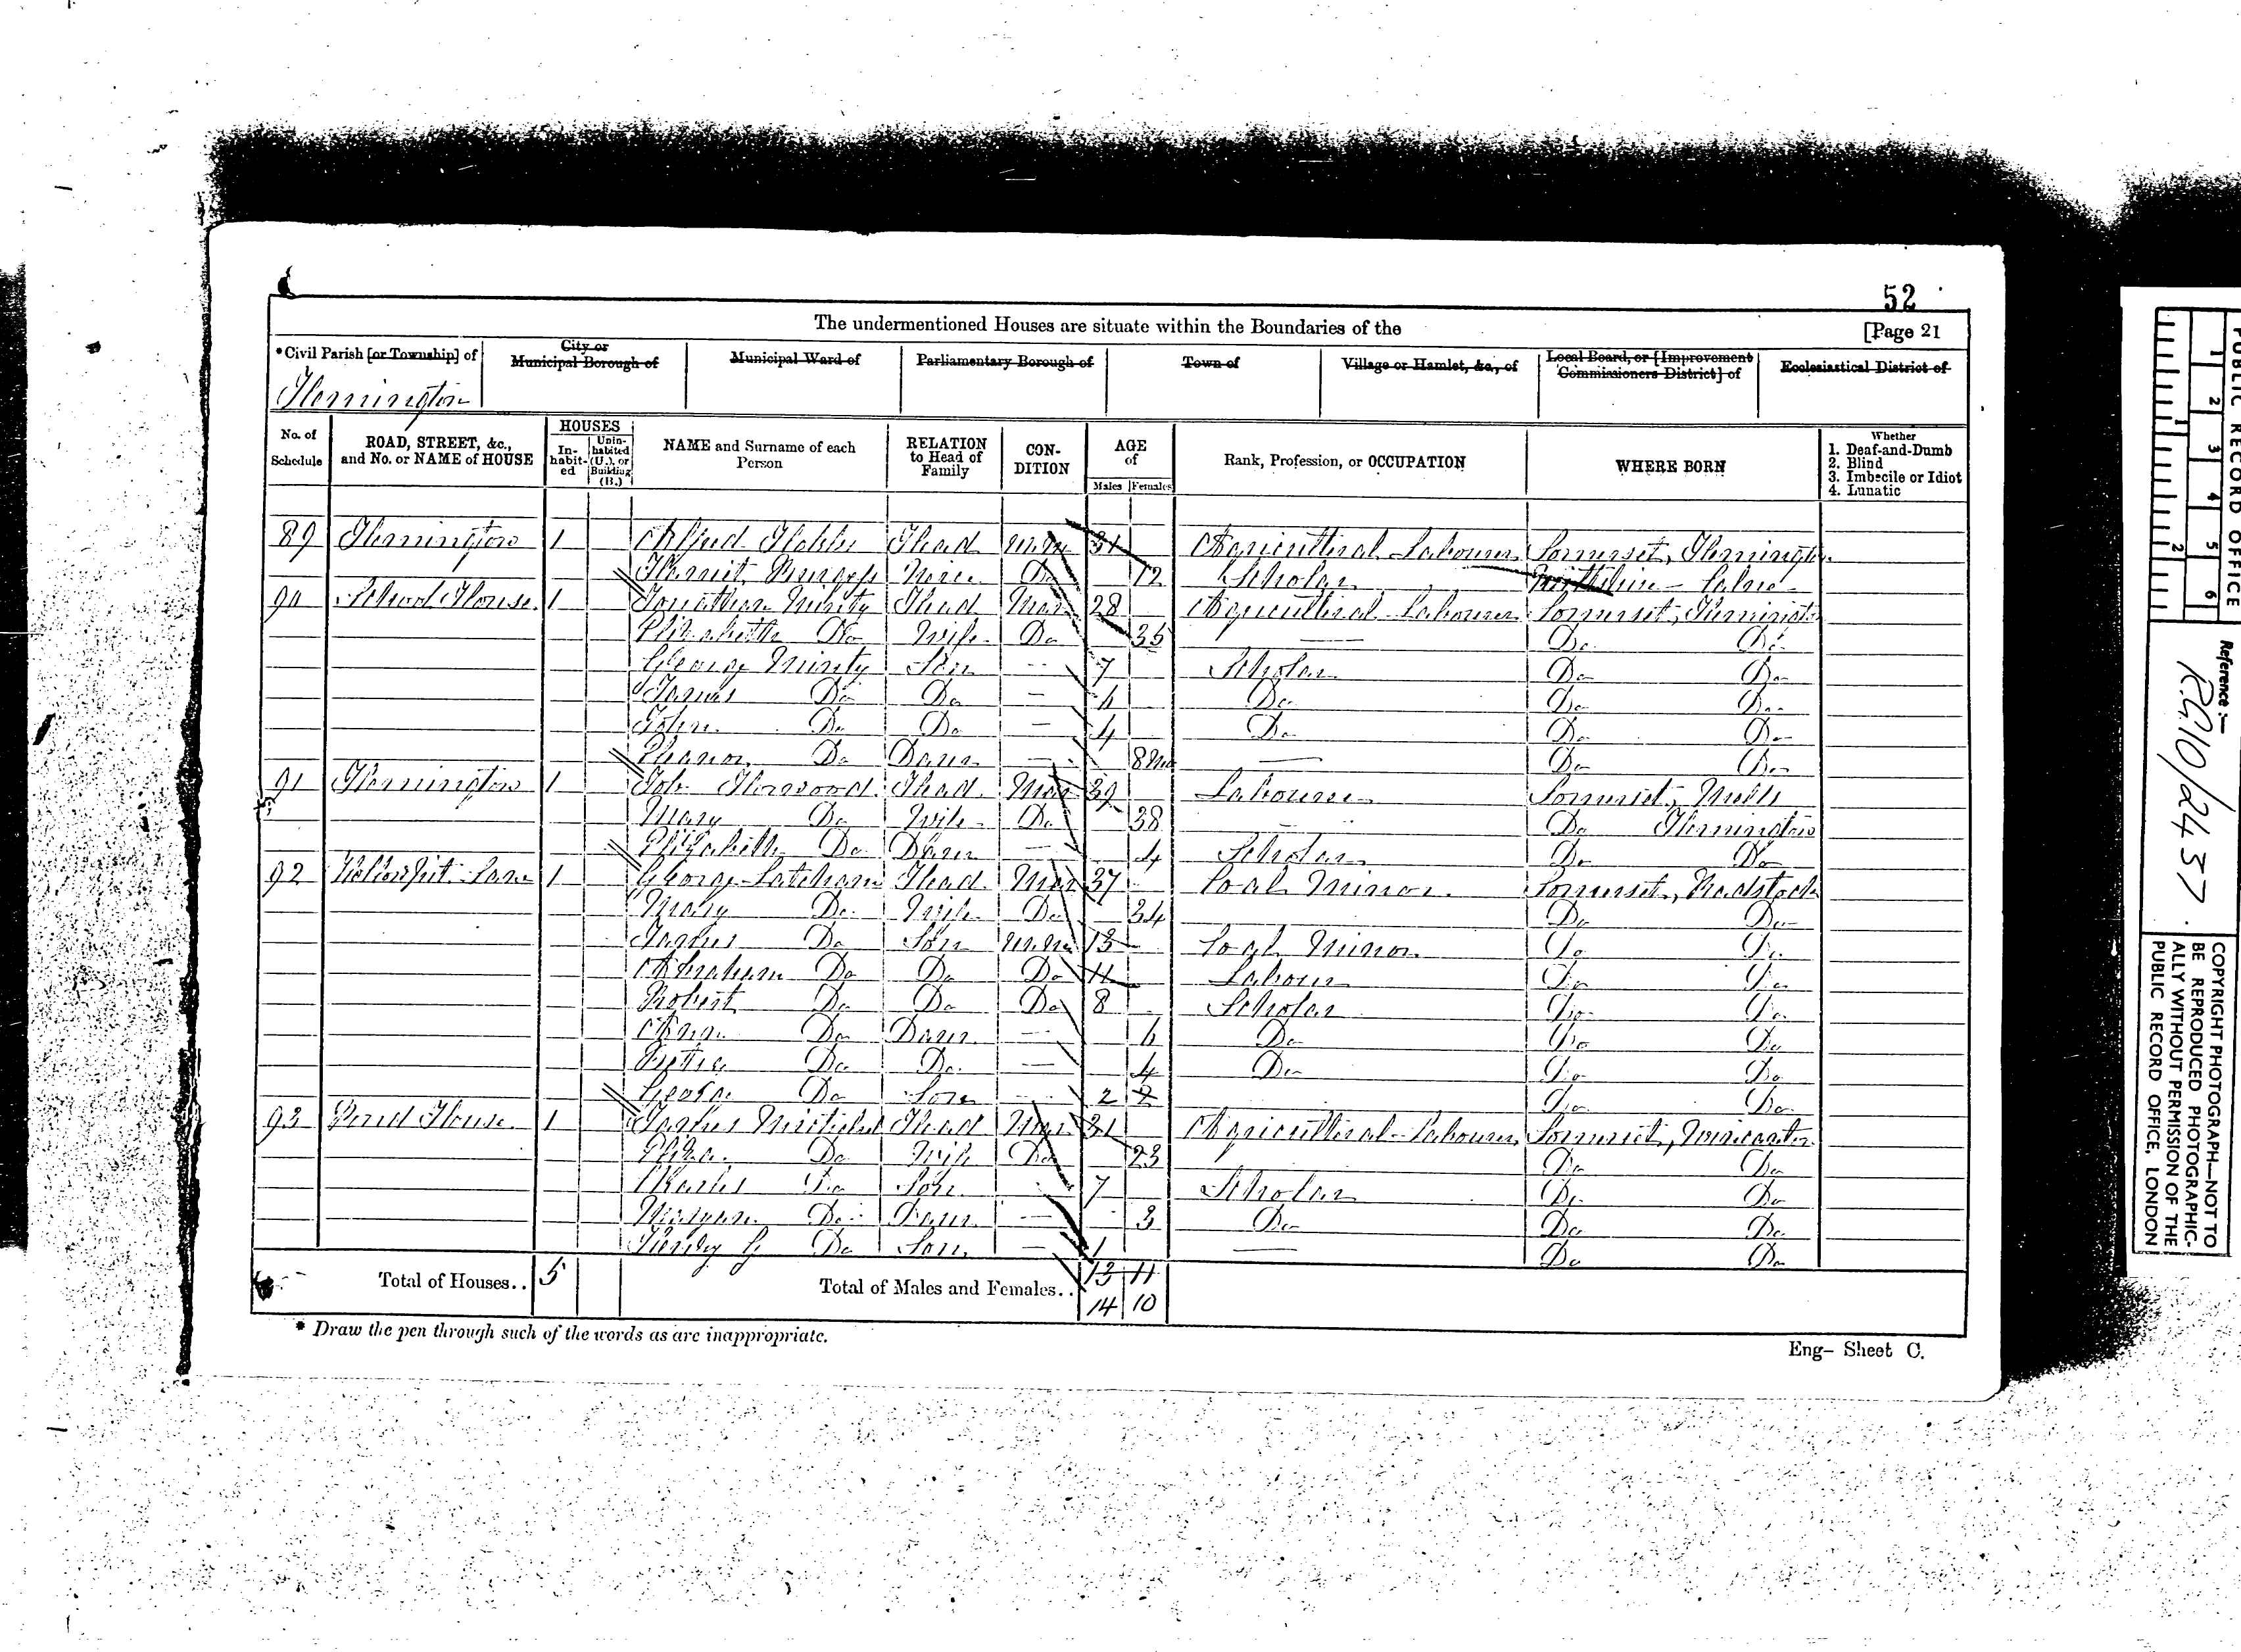 52
The undermentioned Houses are situate within the Boundaries of the [Page 21
*Civil Parish [or Township] of City or Municipal Borough of Municipal Ward of Parliamentary Borough of Town of Village or Hamlet, &c., of Local Board, or [Improvement Commissioners District] of Ecclesiastical District of
Hemington
No. of Schedule ROAD, STREET, &c., and No. or NAME of HOUSE HOUSES In-habit-ed Unin-habited (U.), or Building (B.) NAME and Surname of each Person RELATION to Head of Family CON-DITION AGE of Males Females Rank, Profession, or OCCUPATION WHERE BORN Whether 1. Deaf-and-Dumb 2. Blind 3. Imbecile or Idiot 4. Lunatic
89 Hemington 1 Alfred Head 31 Agricultural Labourer Somerset, Hemington
Harriet Burgess Niece Do 12 Scholar Wiltshire Calne
90 School House 1 Jonathan Minty Head Mar 28 Agricultural Labourer Somerset, Hemington
Elizabeth Do Wife Do 35 — Do Do
George Minty Son — 7 Scholar Do Do
James Do Do — 6 Do Do Do
John Do Do — 4 Do Do Do
Eleanor Do Daur — 8 Mo — Do Do
91 Hemington 1 Job Horwood Head Mar 39 Labourer Somerset, Mells
Mary Do Wife Do 38 — Do Hemington
Elizabeth Do Daur — 4 Scholar Do Do
92 Lane 1 George Latcham Head Mar 37 Coal Minor Somerset, Radstock
Do Wife Do 34 Do Do
James Do Son Unm 13 Coal Minor Do Do
Abraham Do Do Do 11 Labour Do Do
Robert Do Do Do 8 Scholar Do Do
Do Daur — 6 Do Do Do
Do Do — 4 Do Do Do
George Do Son — 2 2 Do Do
93 Pond House 1 James Head Mar 31 Agricultural Labourer Somerset, Wincanton
Eliza Do Wife Do 23 Do Do
Charles Do Son 7 Scholar Do Do
Do Daur — 3 Do Do Do
G Do Son — 1 — Do Do
Total of Houses.. 5 Total of Males and Females.. 13 11
14 10
* Draw the pen through such of the words as are inappropriate.
Eng- Sheet C.
PUBLIC RECORD OFFICE
1 2 3 4 5 6
1 2
Reference :—
RG10/2437
COPYRIGHT PHOTOGRAPH—NOT TO
BE REPRODUCED PHOTOGRAPHIC-
ALLY WITHOUT PERMISSION OF THE
PUBLIC RECORD OFFICE, LONDON